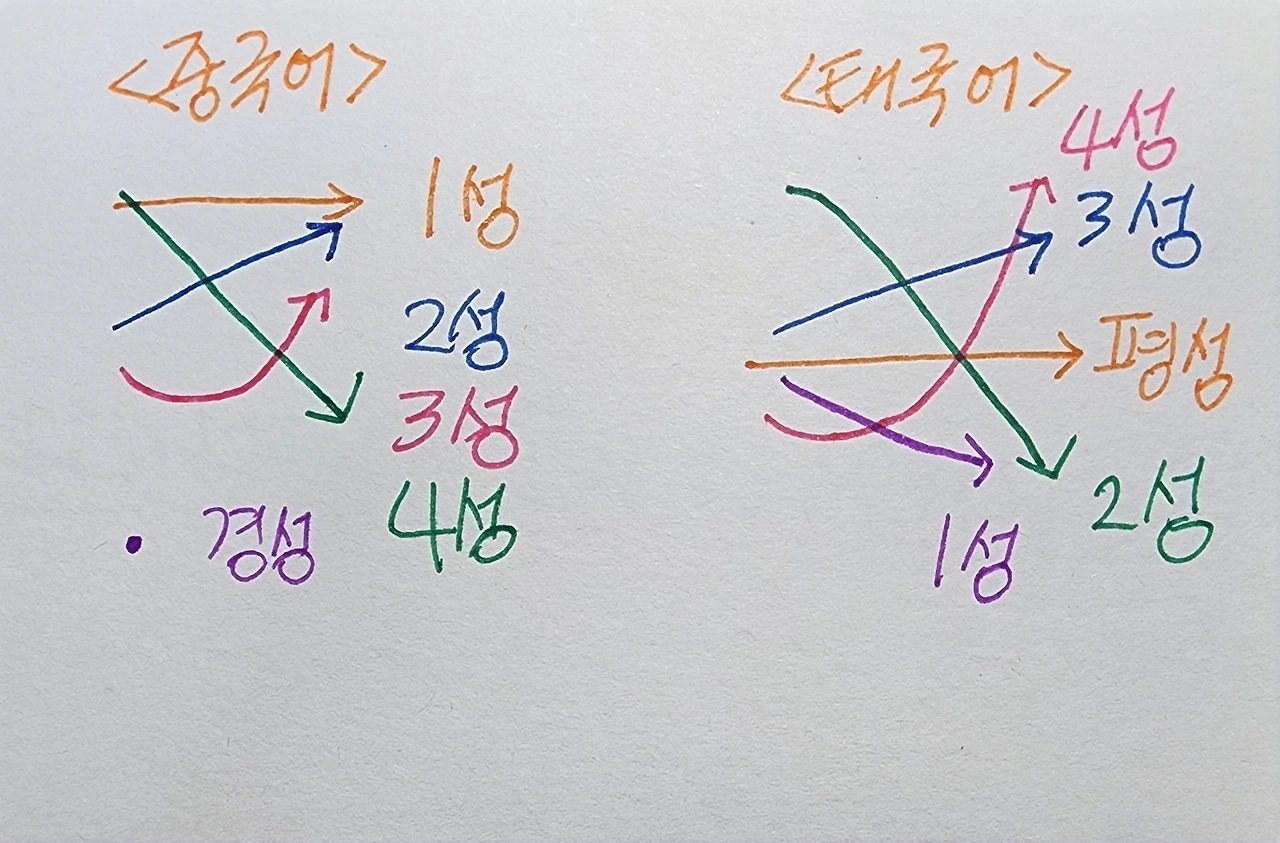 <중국어>
1성
2성
3성
4성
경성
<태국어>
4성
3성
평성
2성
1성